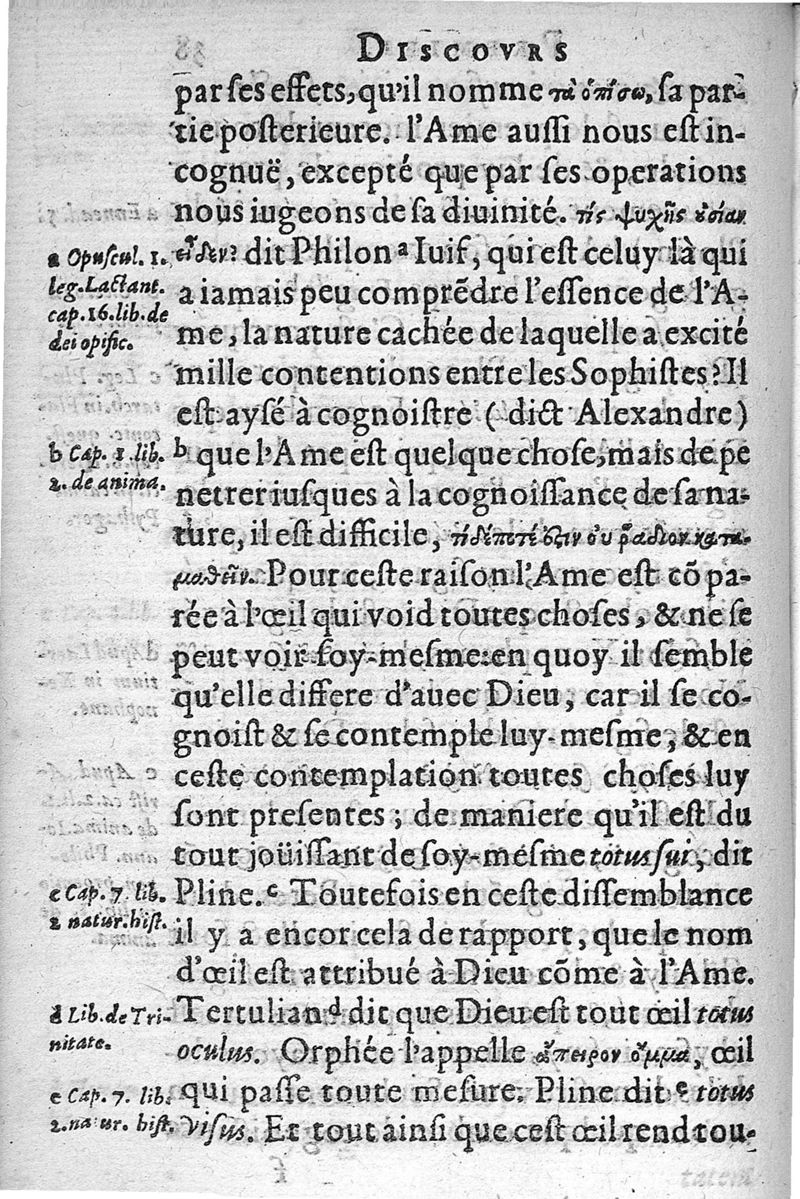 DISCOVRS
par ses effets, qu'il nomme τὰ ὀπίσω, sa par-
tie posterieure. l'Ame aussi nous est in-
cognuë, excepté que par ses operations
nous iugeons de sa diuinité. τίς ψυχῆς οὐσίαν
εἶδεν? dit Philon a Iuif, qui est celuy là qui
a iamais peu comprẽdre l'essence de l'A-
me, la nature cachée de laquelle a excité
mille contentions entre les Sophistes? Il
est aysé à cognoistre ( dict Alexandre)
b que l'Ame est quelque chose, mais de pe
netrer iusques à la cognoissance de sa na-
ture, il est difficile, τὶ δέ ποτέ ἐστιν οὐ ῥᾴδιον κατα-
μαθεῖν. Pour ceste raison l'Ame est cõpa-
rée à l'œil qui void toutes choses, & ne se
peut voir soy-mesme: en quoy il semble
qu'elle differe d'auec Dieu, car il se co-
gnoist & se contemple luy-mesme, & en
ceste contemplation toutes choses luy
sont presentes ; de maniere qu'il est du
tout joüissant de soy-mesme totus sui, dit
Pline. c Toutefois en ceste dissemblance
il y a encor cela de rapport, que le nom
d'œil est attribué à Dieu cõme à l'Ame.
Tertulian d dit que Dieu est tout œil totus
oculus. Orphée l'appelle ἄπειρον ὄμμα, œil
qui passe toute mesure. Pline dit e totus
visus. Et tout ainsi que cest œil rend tou-
a Opuscul. 1.
leg. Lactant.
cap. 16. lib. de
dei opific.
b Cap. 1 lib.
2. de anima.
c Cap. 7. lib.
2 natur. hist.
d Lib. de Tri-
nitate.
e Cap. 7. lib.
2. natur. hist.